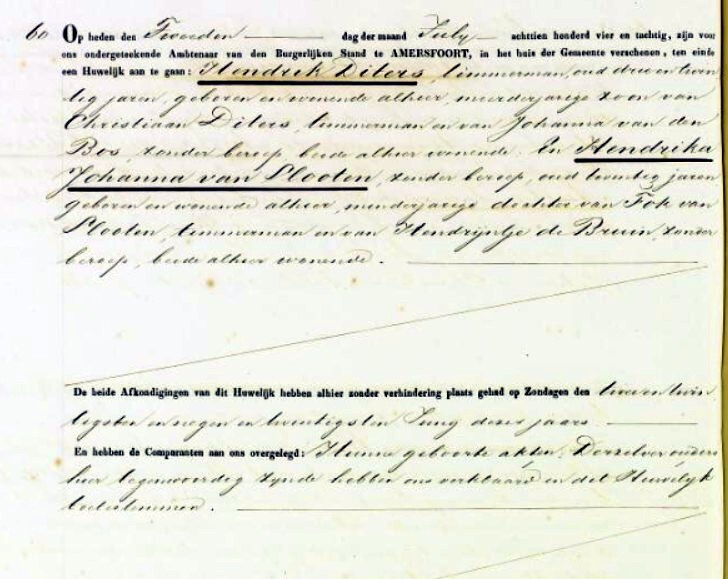 60 Op heden den Tweeden dag der maand July achttien honderd vier en tachtig, zijn voor
ons ondergeteekende Ambtenaar van den Burgerlijken Stand te AMERSFOORT, in het huis der Gemeente verschenen, ten einde
een Huwelijk aan te gaan: Hendrik Diters, timmerman, oud drie en twin
tig jaren, geboren en wonende alhier, meerderjarige zoon van
Christiaan Diters, timmerman en van Johanna van den
Bos, zonder beroep, beide alhier wonende. En Hendrika
Johanna van Slooten, zonder beroep, oud twintig jaren
geboren en wonende alhier, minderjarige dochter van Fok van
Slooten, timmerman en van Hendrijntje de Bruin, zonder
beroep, beide alhier wonende.
De beide Afkondigingen van dit Huwelijk hebben alhier zonder verhindering plaats gehad op Zondagen den twee en twin
tigsten en negen en twintigsten Juny dezes jaars
En hebben de Comparanten aan ons overgelegd: Hunne geboorte akten. Derzelver ouders
hier tegenwoordig zynde hebben ons verklaard in dit Huwelyk
toetestemmen.